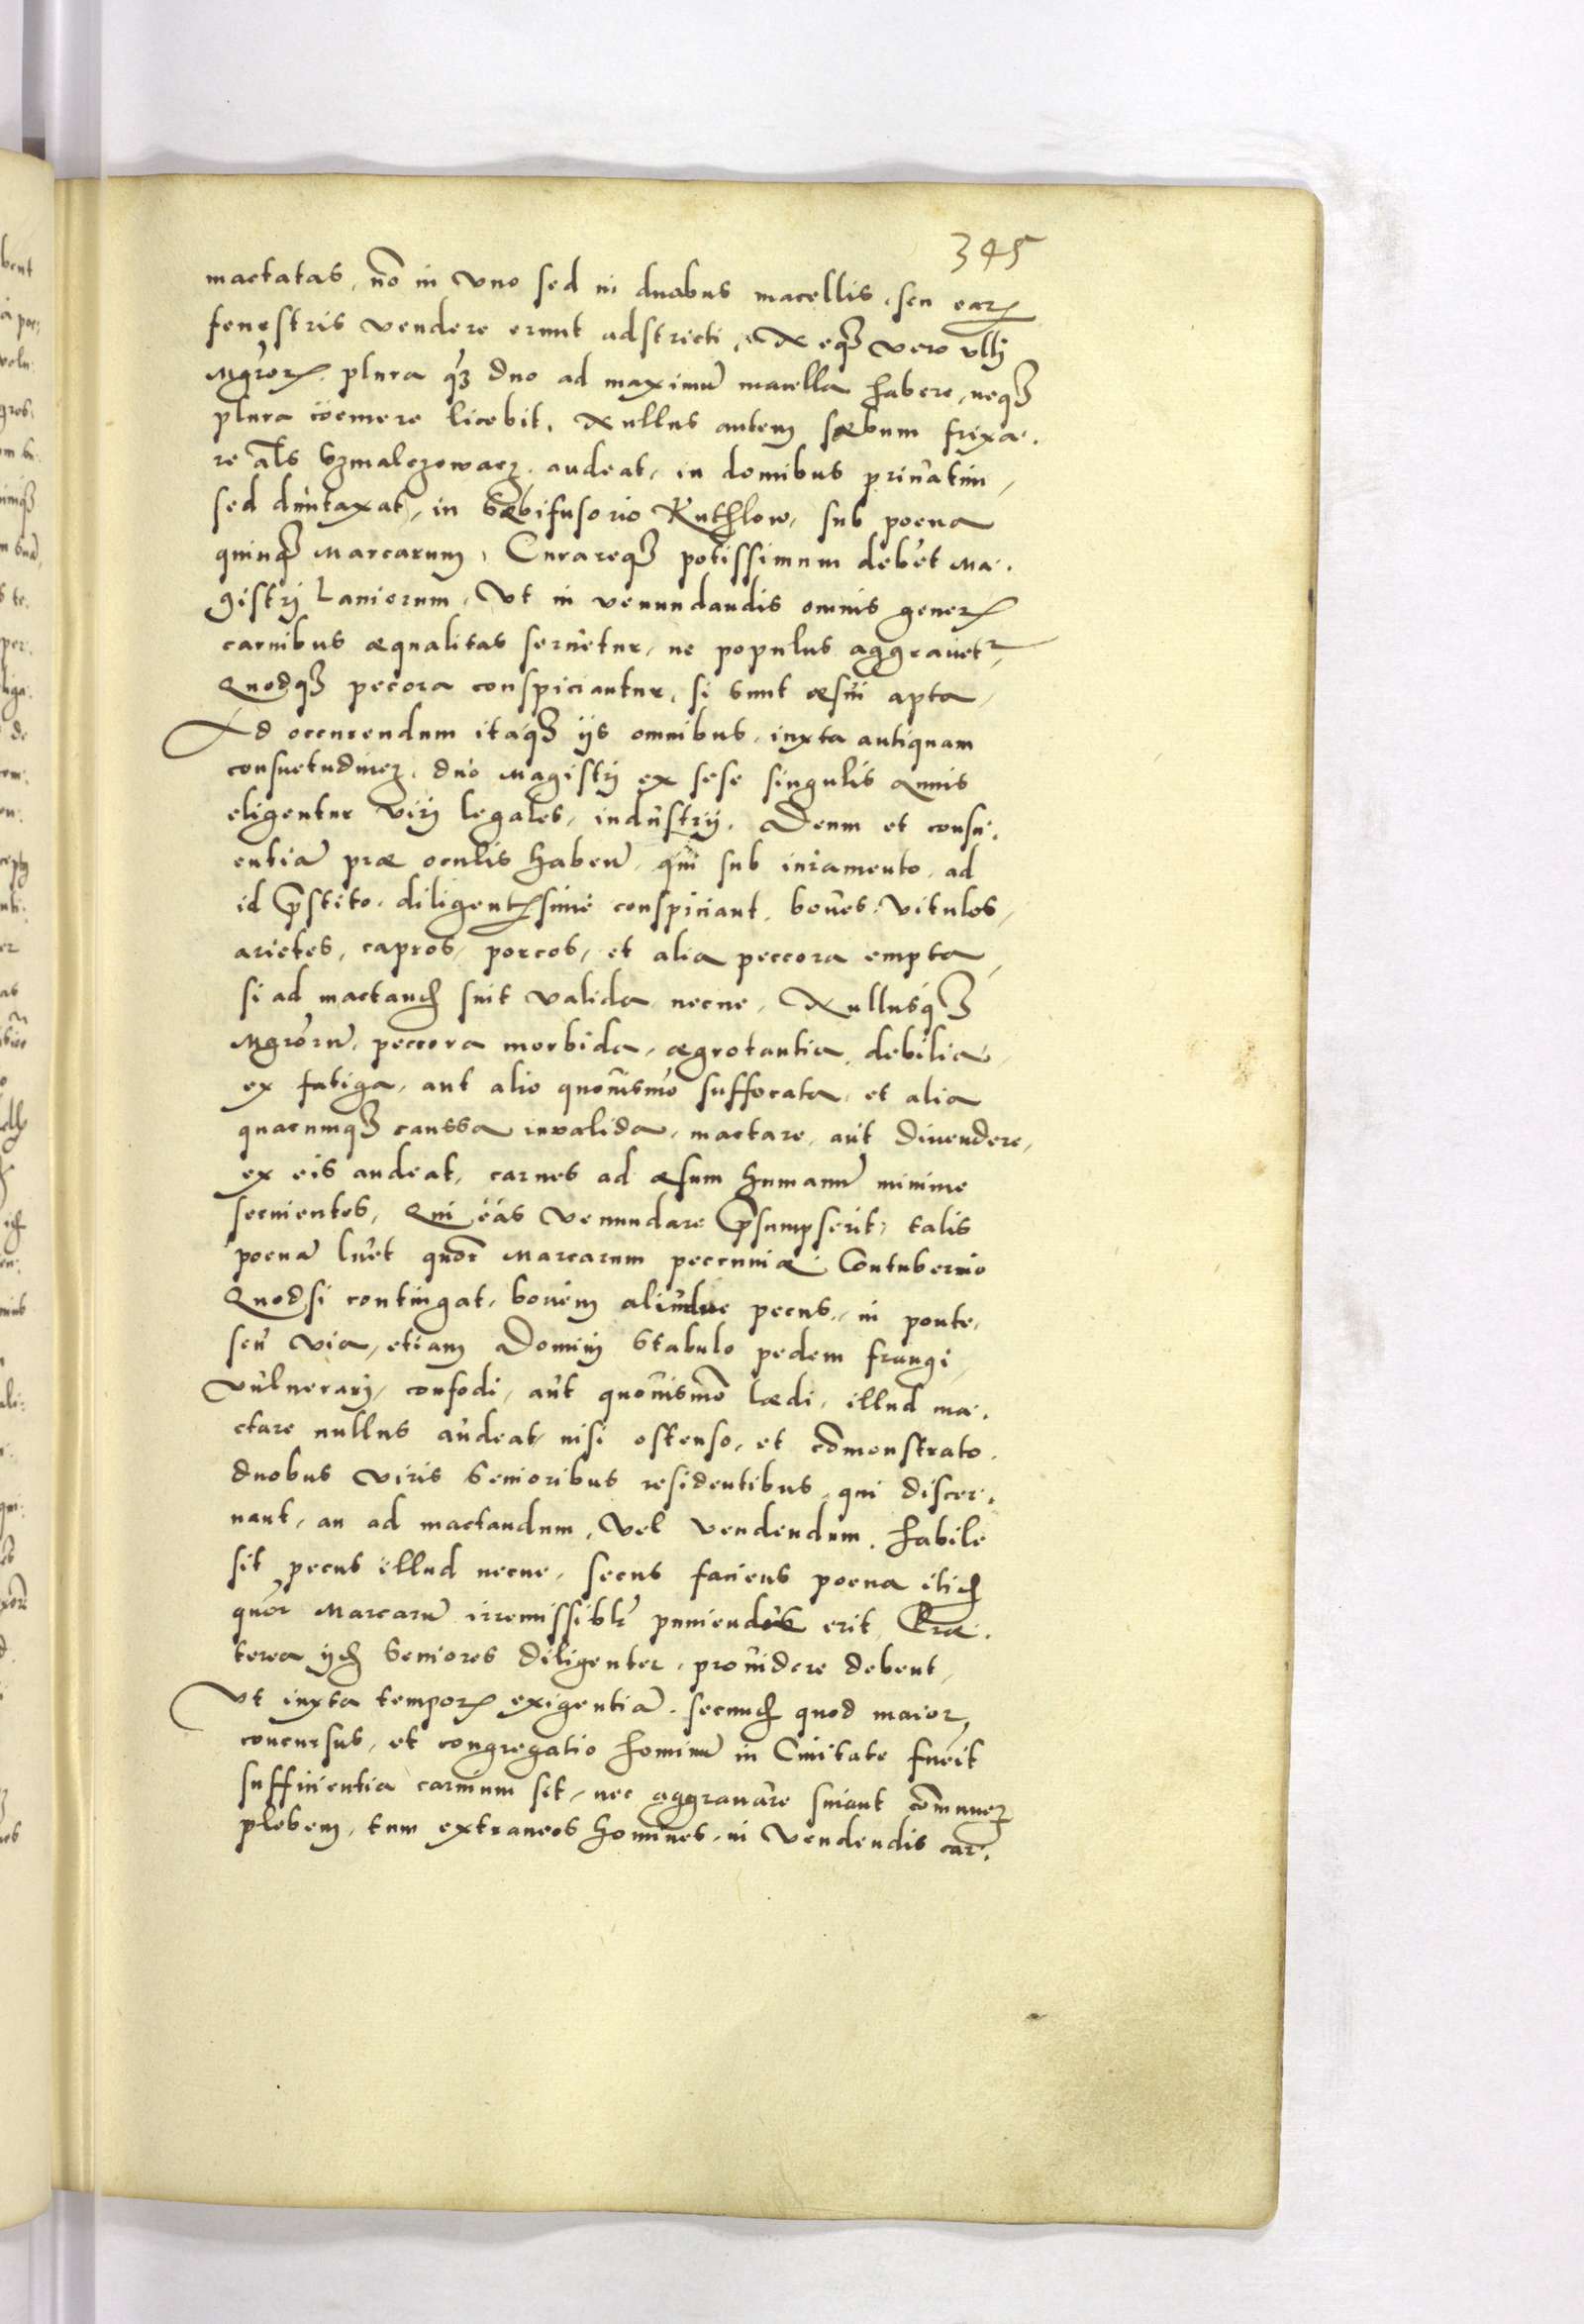 345
mactatas, nō in vno sed in duabus macellis, seu earꝝ
fenestris vendere erunt adstricti, Neqꝫ vero vllj
Mgr̄orꝝ plura qꝫ duo ad maximū macella habere, neqꝫ
plura coemere licebit, Nullus autem sæbum frixa-
re al̄s szmalczowacz, audeat, in domibus priuatim,
sed duntaxat, in sæbifusorio Kuthlow, sub poena
quinqꝫ Marcarum, Curareqꝫ potissimum debēt Ma-
gistrj Laniorum, Vt in venundandis omnis generꝭ
carnibus æqualitas seruetur, ne populus aggrauetr,
Quodqꝫ pecora conspiciantur, si sunt æsui apta,
Ad occurendum itaqꝫ ijs omnibus, iuxta antiquam
consuetudinez, duo Magistrj ex sese singulis annis
eligentur virj legales, industrij, Deum et consci-
entiā præ oculis habenᷓ, qui sub iuramento, ad
id p̄stito, diligentꝭsime conspiciant, boues, vitulos,
arietes, capros, porcos, et alia peccora empta,
si ad mactandꝫ sint valida necne, Nullusqꝫ
Mgr̄orū, peccora morbida, ægrotantia, debilia,
ex fatiga, aut alio quouismō suffocata, et alia
quacumqꝫ caussa inualida, mactare, aut diuendere,
ex eis audeat, carnes ad æsum humanū minime
seruientes, Qui eas venundare p̄sumpserit, talis
poenā luet quōr Marcarum peccuniæ Contubernio
Quodsi contingat, bouem aliudue pecus, in ponte,
seu via, etiam Dominj stabulo pedem frangi,
vulnerarj, confodi, aut quouismō lædi, illud ma-
ctare nullus audeat, nisi ostenso, et cōmonstrato
duobus viris senioribus residentibus, qui discer-
nant, an ad mactandum, vel vendendum, habile
sit pecus illud necne, secus faciens poena itidꝫ
quōr Marcarū irremissiblr̄ puniendus erit, Præ-
terea ijdꝫ seniores diligenter, prouidere debent,
Vt iuxta temporꝭ exigentiā, secundꝫ quod maior
concursus, et congregatio hominū in Ciuitate fuerit
sufficientia carnium sit, nec aggrauare sinant cōmunez
plebem, tum extraneos homines, in vendendis car-